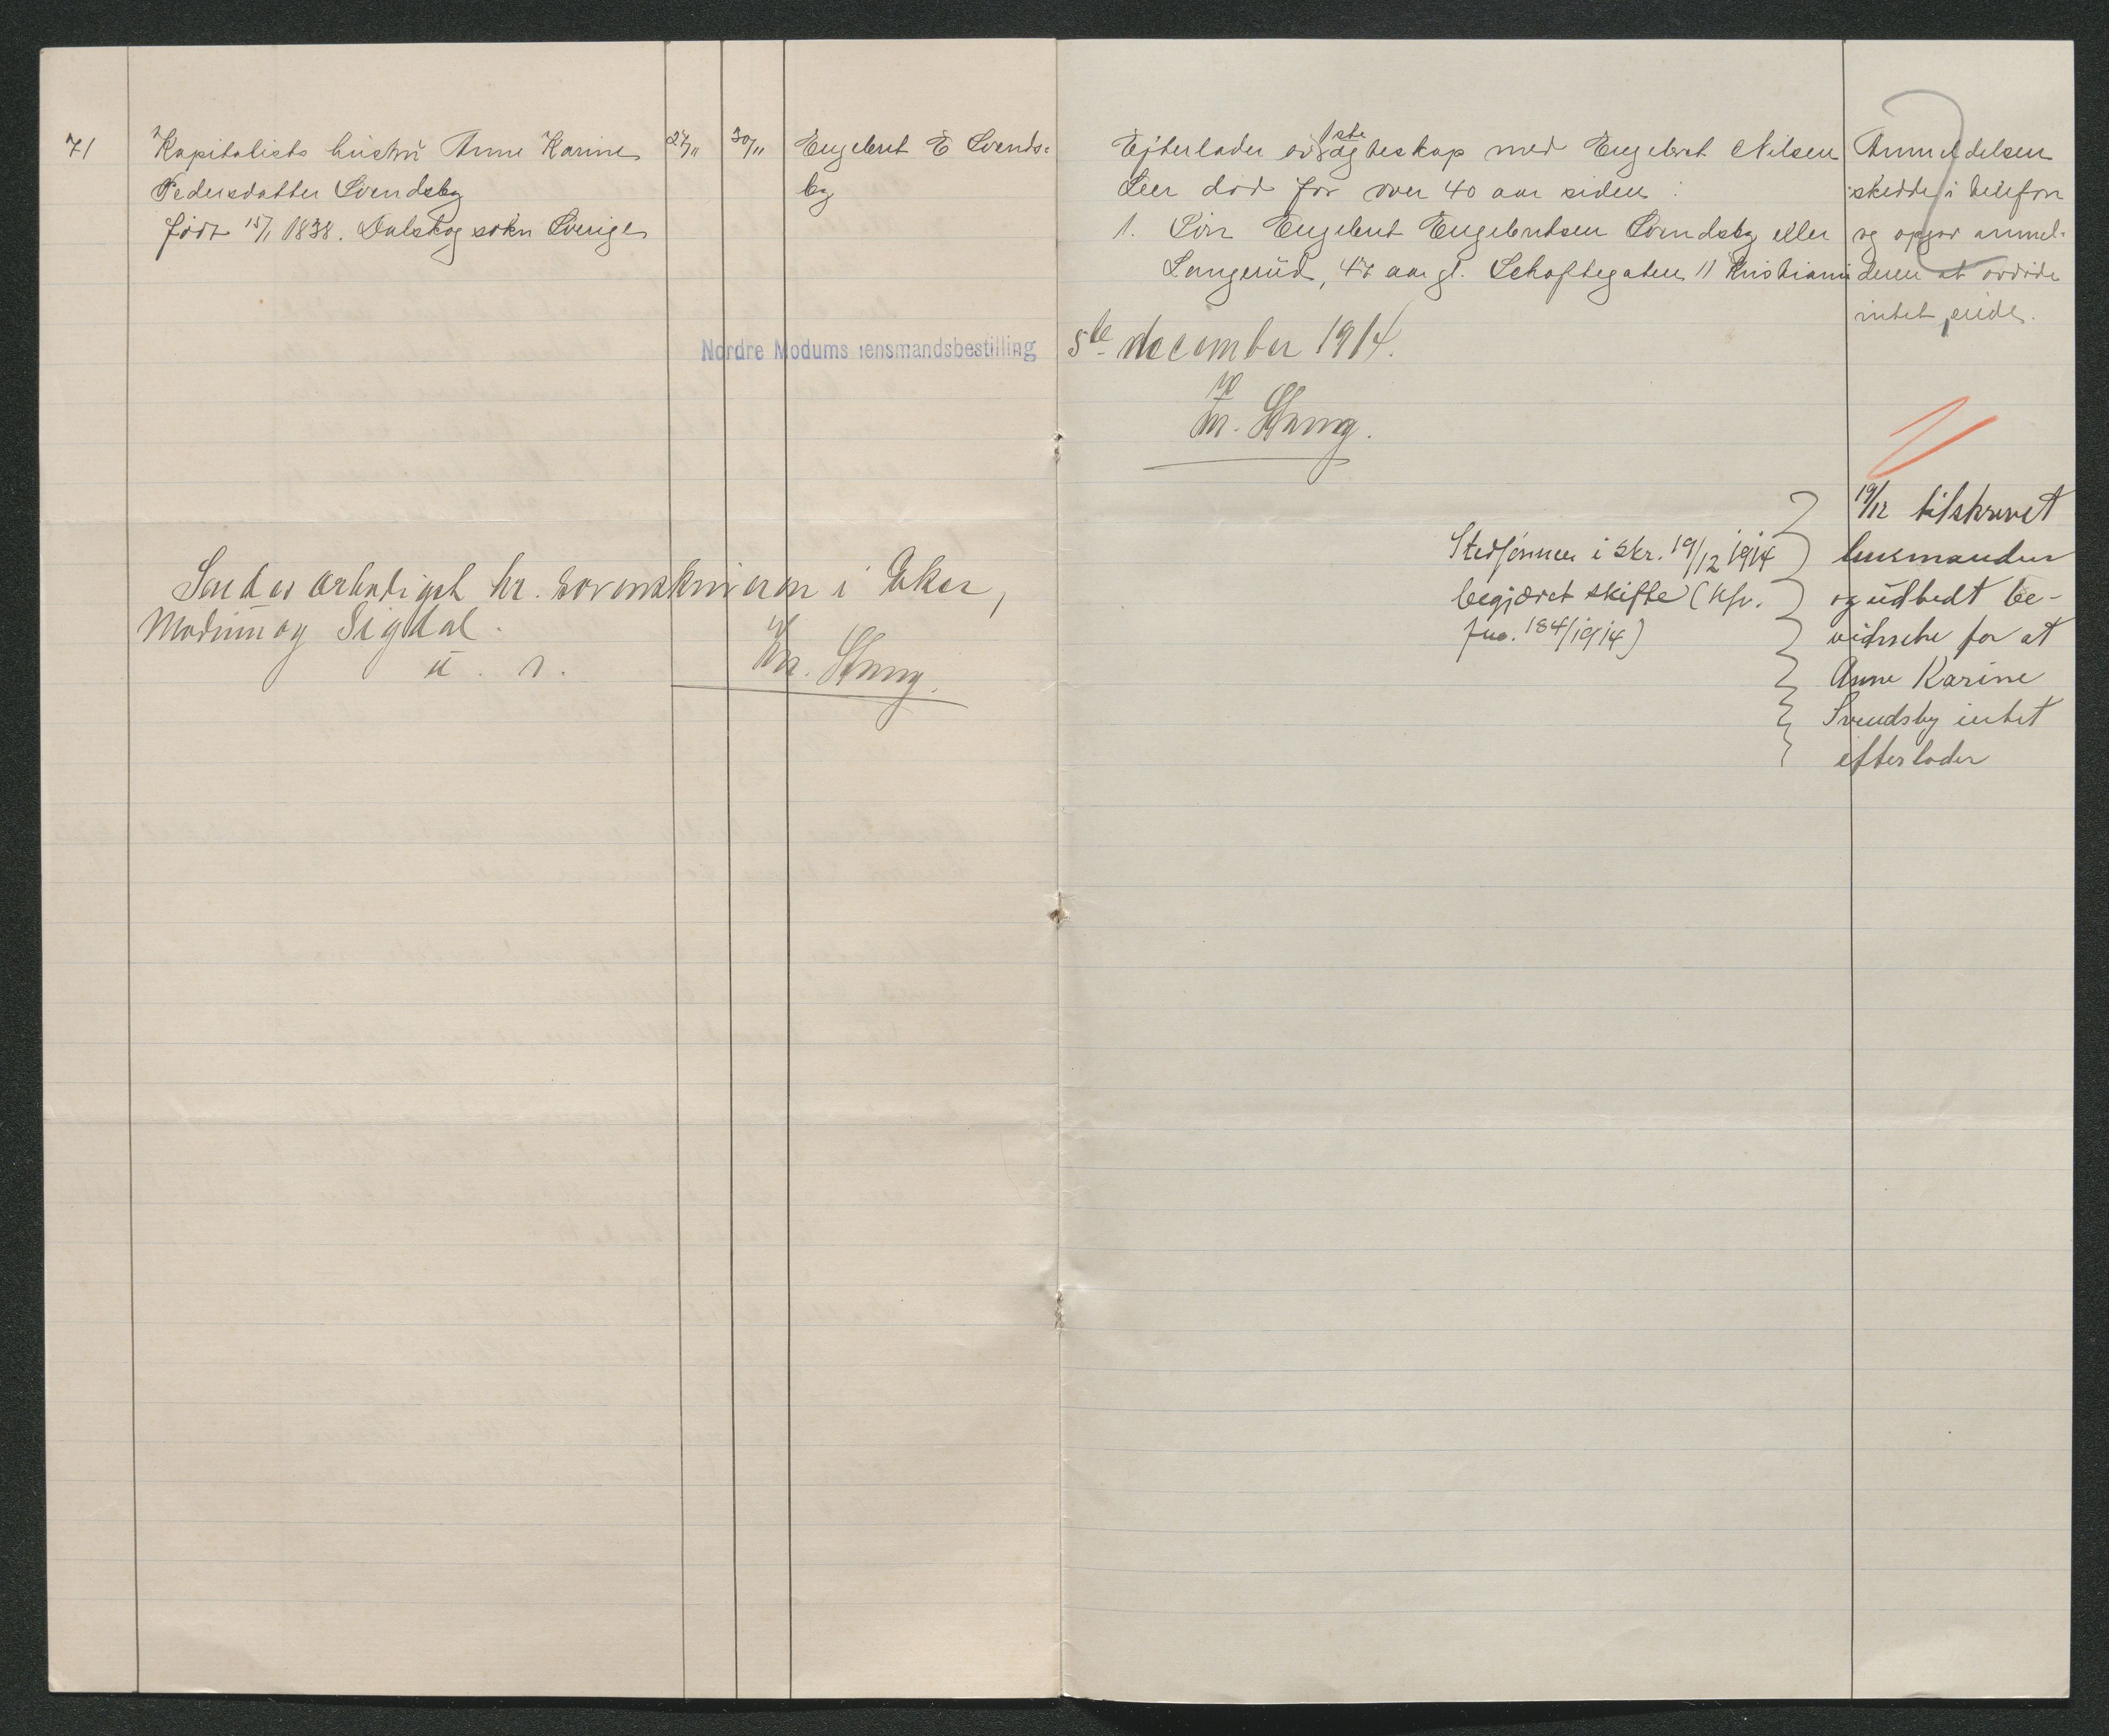 71
Kapitalists hustru Anne Karine
Pedersdatter Svendsby
født 15/1 1838. Dalskog sokn Sverige
27/11
30/11
Engebret E Svends-
by
Efterlader av 1ste ægteskap med Engebret Nilsen
Leer død for over 40 aar siden :
1. Søn Engebret Engebretsen Svendsby eller
Langerud, 47 aar gl. Schaftegaten 11 Kristiania
Anmeldelsen
skedde i telefon
og opgav anmel-
deren at avdøde
intet eiede.
Nordre Modums lensmandsbestilling
5te december 1914.
M. Stang.
Sendes ærbødigst hr. sorenskriveren i Eker,
Modum og Sigdal.
M. Stang.
Stedsønnen i skr. 19/12 1914
begjæret skifte (kfr.
jno. 184/1914)
19/12 tilskrevet
lensmanden
og udbedt be-
vidnelse for at
Anne Karine
Svendsby intet
efterlader